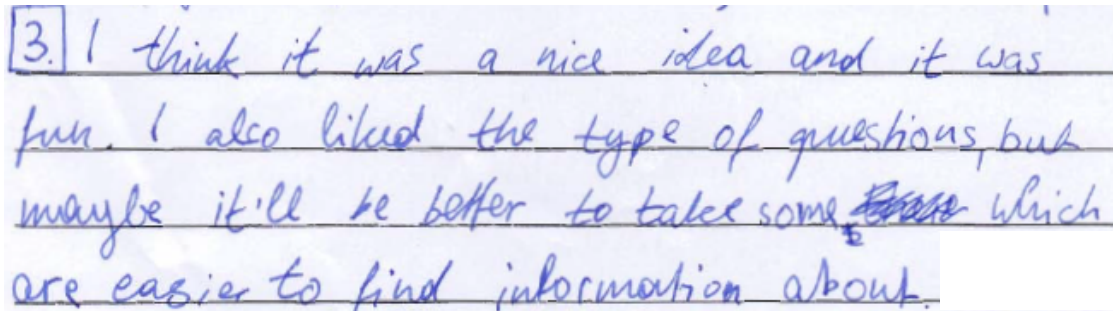 3. I think it was a nice idea and it was
fun. I also liked the type of questions, but
maybe it'll be better to take some which
are easier to find information about.